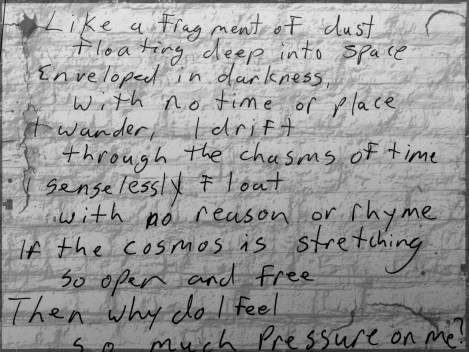 Like a fragment of dust
floating deep into space
Enveloped in darkness,
with no time or place
I wander, I drift
through the chasms of time
I senselessly float
with no reason or rhyme
If the cosmos is stretching
so open and free
Then why do I feel
so much pressure on me?